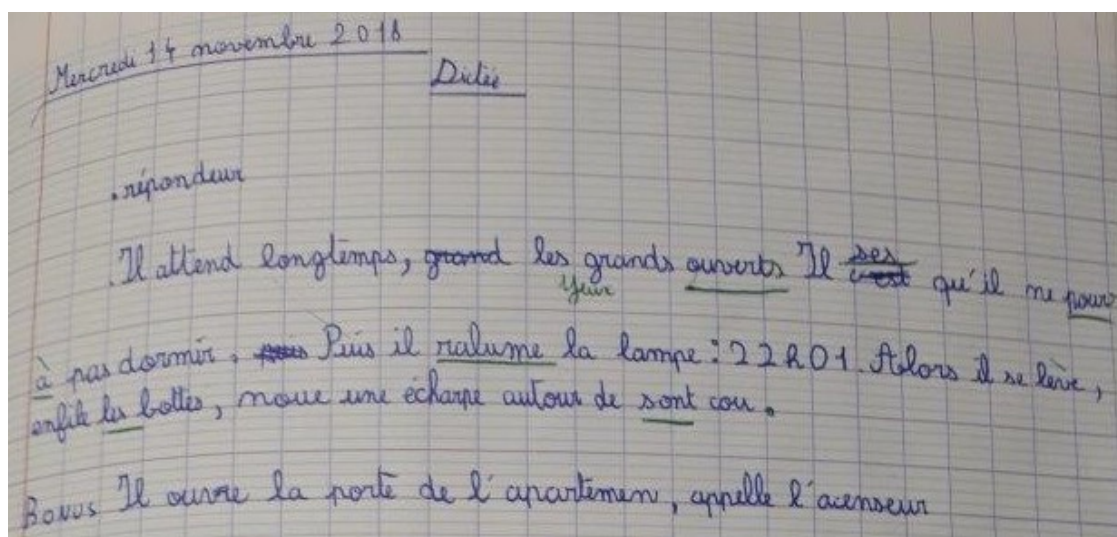 Mercredi 14 novembre 2018
Dictée
. répondeur
Il attend longtemps, grand les grands ouverts Il ses qu'il ne pour
yeux
à pas dormir, Puis il ralume la lampe : 22h01. Alors il se lève,
enfile les bottes, noue une écharpe autour de sont cou.
Bonus Il ouvre la porte de l'apartemen, appelle l'acenseur